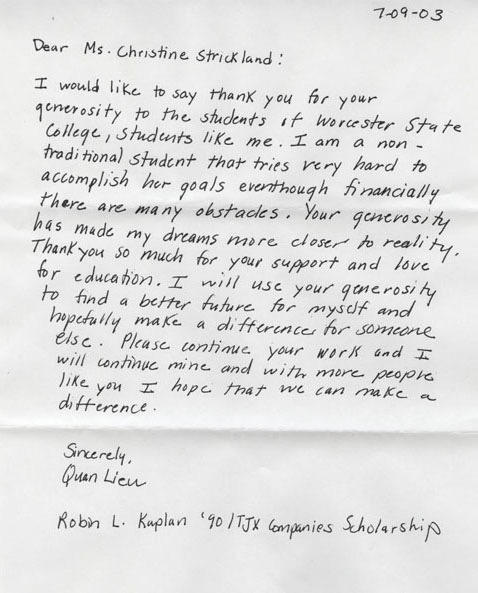 7-09-03
Dear Ms. Christine Strickland:
I would like to say thank you for your
generosity to the students of Worcester State
College, students like me. I am a non-
traditional student that tries very hard to
accomplish her goals eventhough financially
there are many obstacles. Your generosity
has made my dreams more closer to reality.
Thank you so much for your support and love
for education. I will use your generosity
to find a better future for myself and
hopefully make a difference for someone
else. Please continue your work and I
will continue mine and with more people
like you I hope that we can make a
difference.
Sincerely,
Quan Lieu
Robin L. Kaplan '90/TJX Companies Scholarship